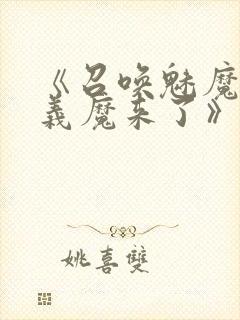 《召唤魅魔
義魔来了》
姚喜雙